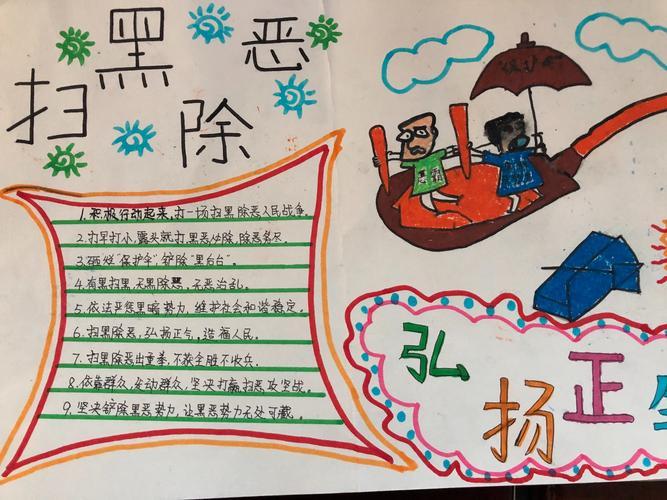 扫黑除恶
1. 积极行动起来,打一场扫黑除恶人民战争.
2. 打早打小,露头就打,黑恶必除,除恶务尽.
3. 砸烂"保护伞"铲除"黑后台".
4. 有黑扫黑,无黑除恶,无恶治乱.
5. 依法严惩黑暗势力,维护社会和谐稳定.
6. 扫黑除恶,弘扬正气,造福人民.
7. 扫黑除恶出重拳,不获全胜不收兵.
8. 依靠群众,发动群众,坚决打赢扫恶攻坚战.
9. 坚决铲除黑恶势力,让黑恶势力无处可藏.
弘扬正